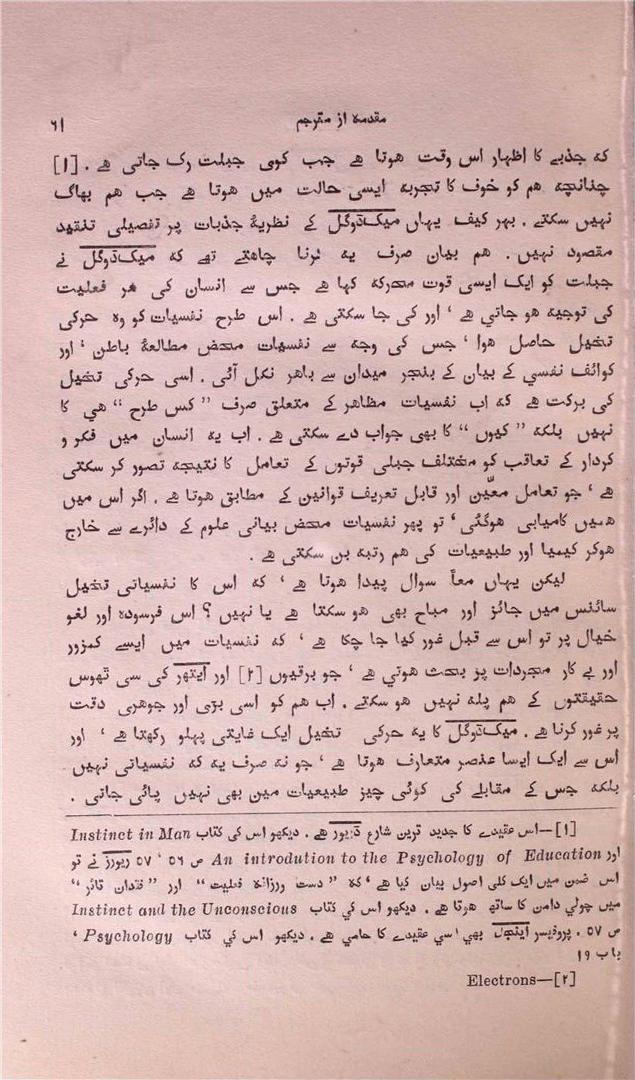 مقدمہ از مترجم ۶۱
کہ جذبے کا اظہار اس وقت ہوتا ہے جب کوئی جبلت رک جاتی ہے ۔ [۱]
چنانچہ ہم کو خوف کا تجربہ ایسی حالت میں ہوتا ہے جب ہم بھاگ
نہیں سکتے ۔ بہر کیف یہاں میکڈوگل کے نظریۂ جذبات پر تفصیلی تنقید
مقصود نہیں ۔ ہم بیان صرف یہ کرنا چاہتے تھے کہ میکڈوگل نے
جبلت کو ایک ایسی قوت متحرکہ کہا ہے جس سے انسان کی ہر فعلیت
کی توجیہ ہو جاتی ہے ، اور کی جا سکتی ہے ۔ اس طرح نفسیات کو وہ حرکی
تخیل حاصل ہوا ، جس کی وجہ سے نفسیات محض مطالعۂ باطن ، اور
کوائف نفسی کے بیان کے بنجر میدان سے باہر نکل آئی ۔ اسی حرکی تخیل
کی برکت ہے کہ اب نفسیات مظاہر کے متعلق صرف ”کس طرح“ ہی کا
نہیں بلکہ ”کیوں“ کا بھی جواب دے سکتی ہے ۔ اب یہ انسان میں فکر و
کردار کے تعاقب کو مختلف جبلی قوتوں کے تعامل کا نتیجہ تصور کر سکتی
ہے ، جو تعامل معیّن اور قابل تعریف قوانین کے مطابق ہوتا ہے ۔ اگر اس میں
ہمیں کامیابی ہوگئی ، تو پھر نفسیات محض بیانی علوم کے دائرے سے خارج
ہوکر کیمیا اور طبیعیات کی ہم رتبہ بن سکتی ہے ۔
لیکن یہاں معاً سوال پیدا ہوتا ہے ، کہ اس کا نفسیاتی تخیل
سائنس میں جائز اور مباح بھی ہو سکتا ہے یا نہیں ؟ اس فرسودہ اور لغو
خیال پر تو اس سے قبل غور کیا جا چکا ہے ، کہ نفسیات میں ایسے کمزور
اور بے کار مجردات پر بحث ہوتی ہے ، جو برقیوں [۲] اور ایتھر کی سی ٹھوس
حقیقتوں کے ہم پلہ نہیں ہو سکتے ۔ اب ہم کو اسی بڑی اور جوہری دقت
پر غور کرنا ہے ۔ میکڈوگل کا یہ حرکی تخیل ایک غایتی پہلو رکھتا ہے ، اور
اس سے ایک ایسا عنصر متعارف ہوتا ہے ، جو نہ صرف یہ کہ نفسیاتی نہیں
بلکہ جس کے مقابلے کی کوئی چیز طبیعیات میں بھی نہیں پائی جاتی ۔
[۱]—اس عقیدے کا جدید ترین شارع ڈریور ہے ۔ دیکھو اس کی کتاب Instinct in Man
اور An introdution to the Psychology of Education ص ۵۶ ، ۵۷ ریورز نے تو
اس ضمن میں ایک کلی اصول بیان کیا ہے ، کہ ”دست ورزانہ فعلیت“ اور ”فقدان تاثر“
میں چولی دامن کا ساتھ ہوتا ہے ۔ دیکھو اس کی کتاب Instinct and the Unconscious
ص ۵۷ ۔ پروفیسر اینجل بھی اسی عقیدے کا حامی ہے ۔ دیکھو اس کی کتاب Psychology ،
باب ۱۹
[۲]—Electrons